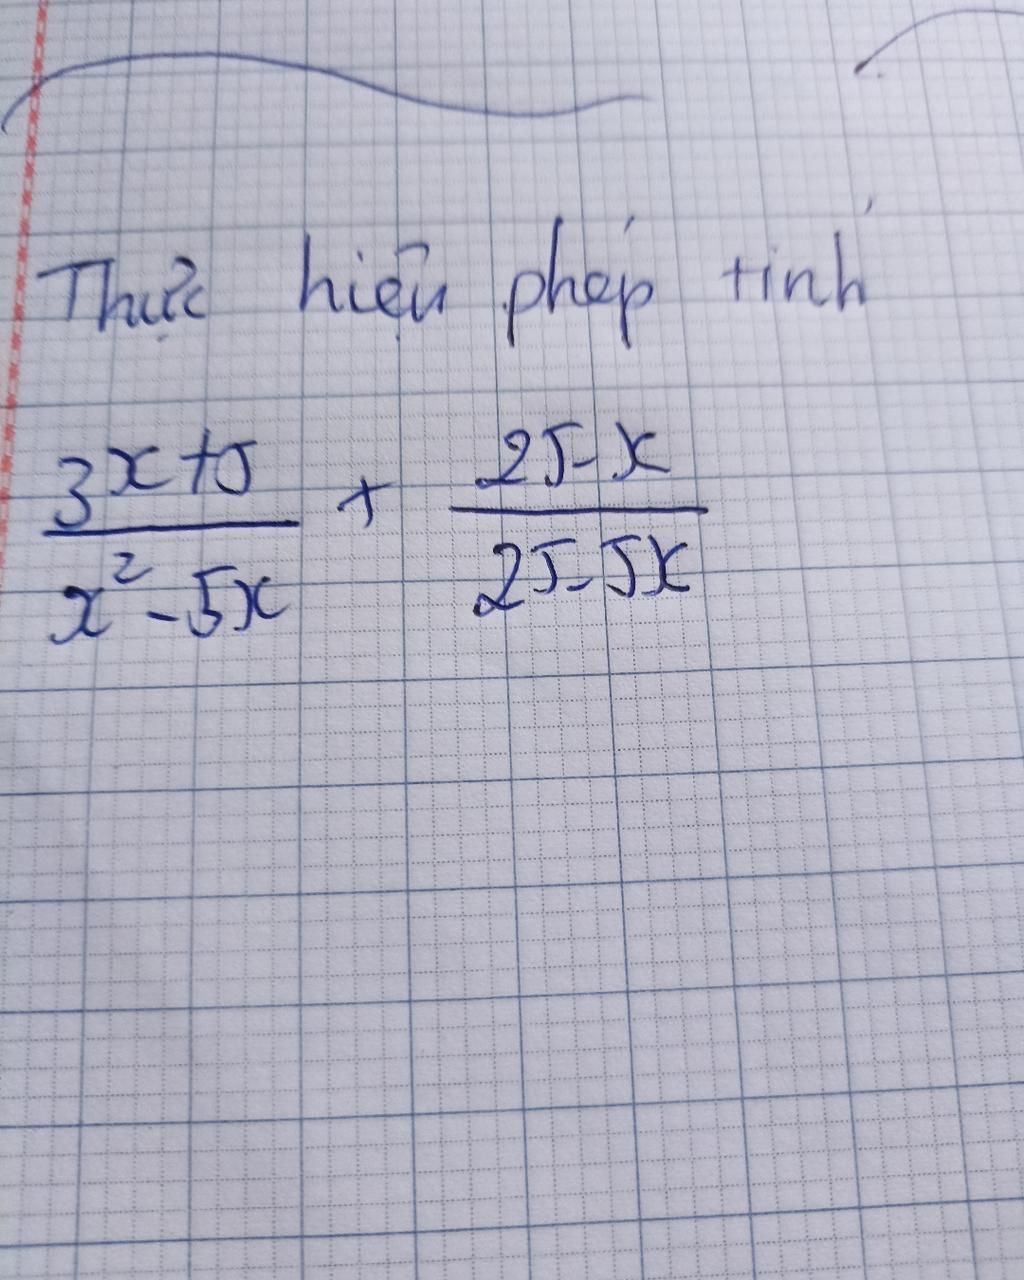 Thực hiện phép tính
3x+5 / x² - 5x + 25-x / 25-5x